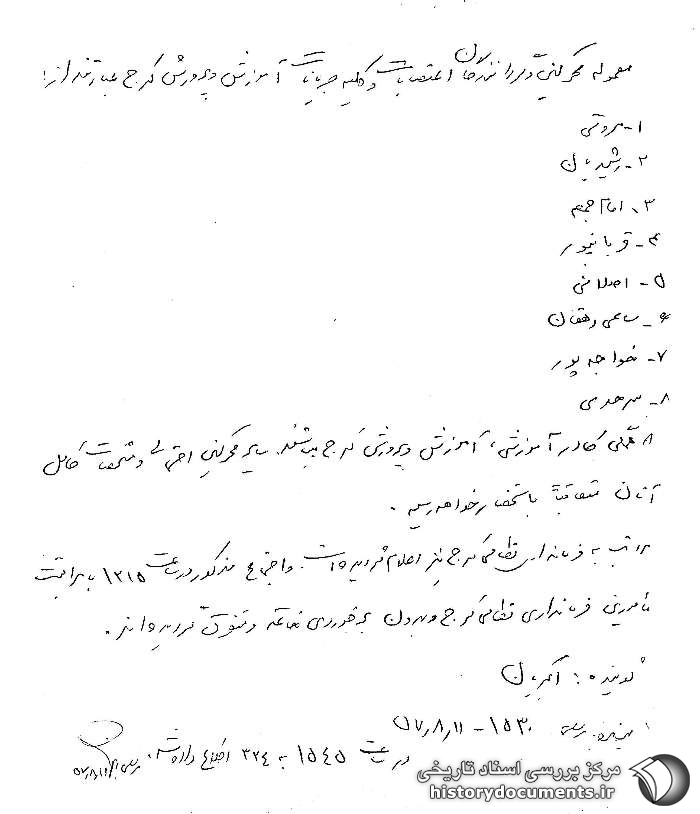 معموله محرکین و گردانندگان اعتصابات و کلیه جریانات آموزش و پرورش کرج عبارتند از:
۱- مروتی
۲- رشیدیان
۳- امام جمعه
۴- قربانپور
۵- اصلانی
۶- ساعی دهقان
۷- خواجه پور
۸- سرهدی
کادر آموزشی، آموزش و پرورش کرج میباشند. سایر محرکین احتمالی و مشخصات کامل
آنان متعاقباً باستحضار خواهد رسید.
مراتب به فرمانداری نظامی کرج نیز اعلام گردیده است. و اجتماع مذکور در ساعت ۱۲۱۵ با مراقبت
مأمورین فرمانداری نظامی کرج و بدون برخوردی خاتمه و متفرق گردیده‌اند.
گوینده: اکبریان
گیرنده: ۱۵۳۰ - ۵۷٫۸٫۱۱
در ساعت ۱۵۴۵ به ۳۲۴ اطلاع داده شد.
مرکز بررسی اسناد تاریخی
historydocuments.ir